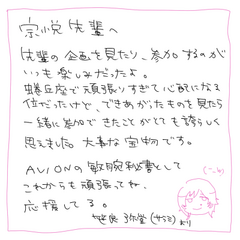 宗悦先輩へ
先輩の企画を見たり、参加するのが
いつも楽しみだったよ。
蠎座で頑張りすぎて心配になる
位だったけど、できあがたものを見たら
一緒に参加できたことがとても誇らしく
思えました。大事な宝物です。
AVIONの敏腕秘書として
これからも頑張ってね。
応援してる。
より